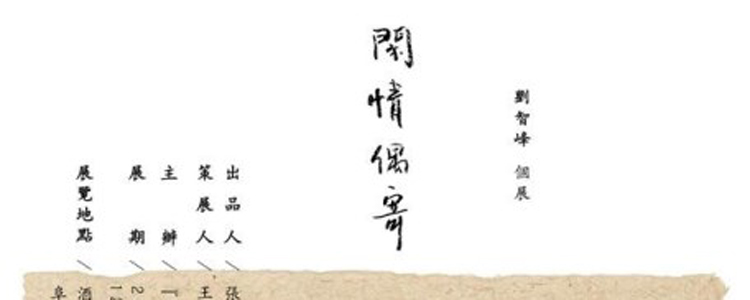 劉智峰 個展
閑情偶寄
出品人/張
策展人/王
主辦/『
展期/2
展覽地點/酒
阜